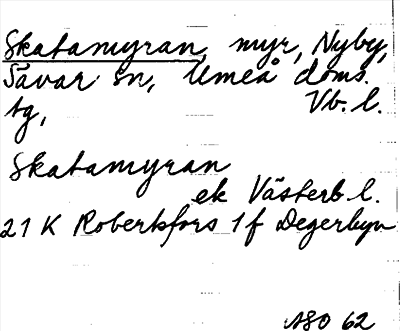 Skatamyran, myr, Nyby,
Sävar sn, Umeå doms.
tg, Vb. l.
Skatamyran
ek Västerb. l.
21 K Robertsfors 1 f Degerbyn
ASO 62